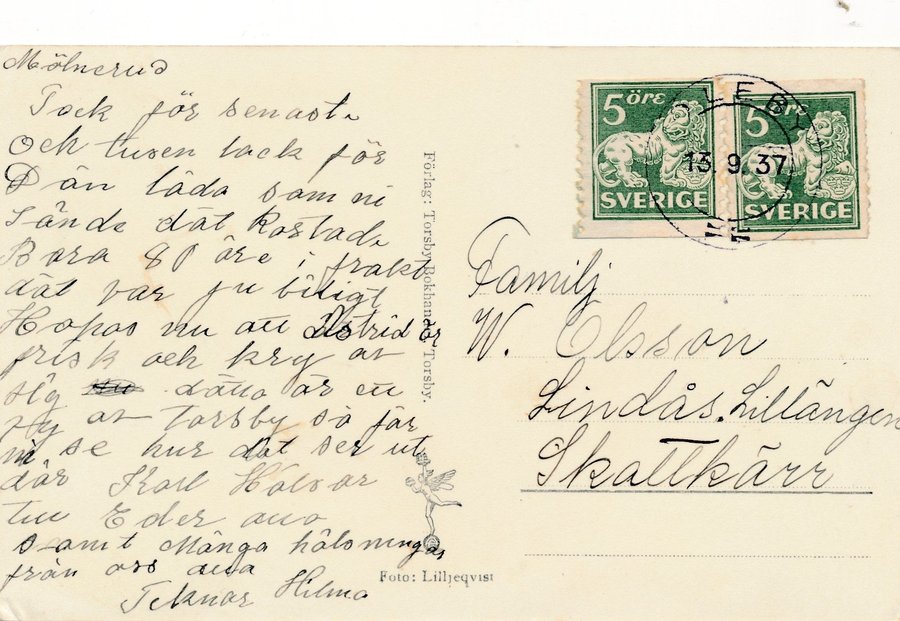 Mölnerud
Tack för senast
och tusen tack för
Dän låda som ni
sände dät kostade
Bara 80 öre i frakt
dät var ju biligt
Hopas nu att Astrid är
frisk och kry av
sig dätta är en
vy av Torsby så får
ni se hur dät ser ut
där Karl Hälsar
till Eder alla
samt Många hälsningar
från oss alla
Teknar Hilma
Förlag: Torsby Bokhandel, Torsby.
Foto: Lilljeqvist
5 öre
SVERIGE
5 öre
SVERIGE
LEBY
13.9.37
Familj
W. Olsson
Lindås. Lillängen
Skattkärr